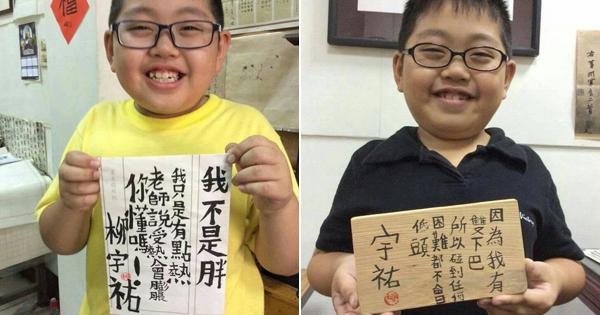 福
我不是胖
我只是有點熱
老師說受熱會膨脹
你懂嗎!
柳宇祐
因為我有
雙下巴
所以碰到任何
困難都不會
低頭
宇祐